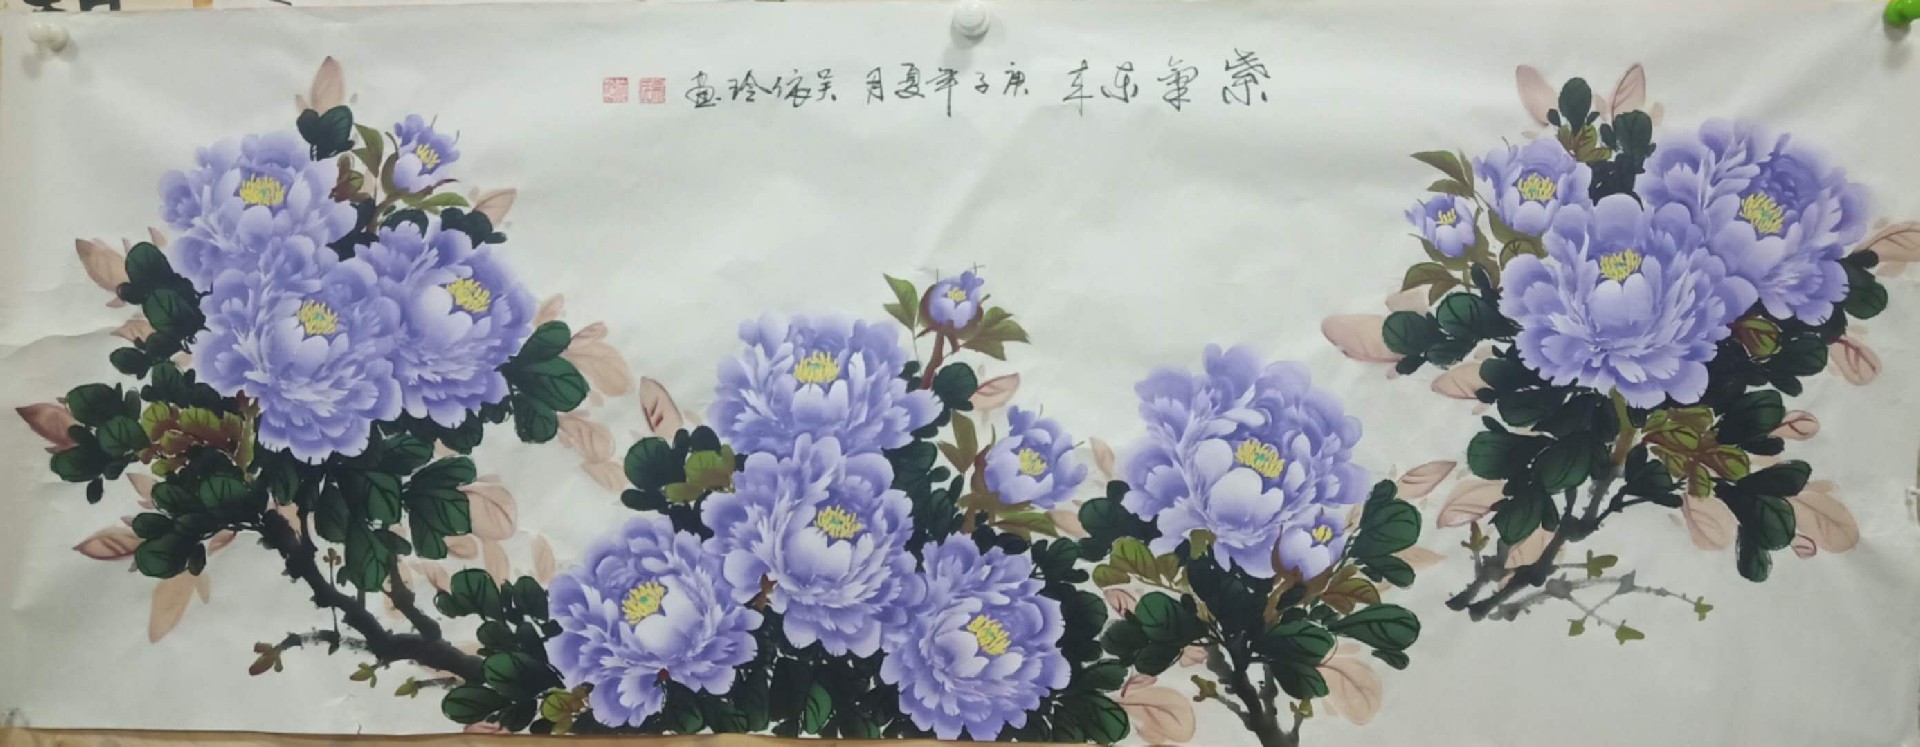 紫氣东来 庚子年夏月 吴依玲畫